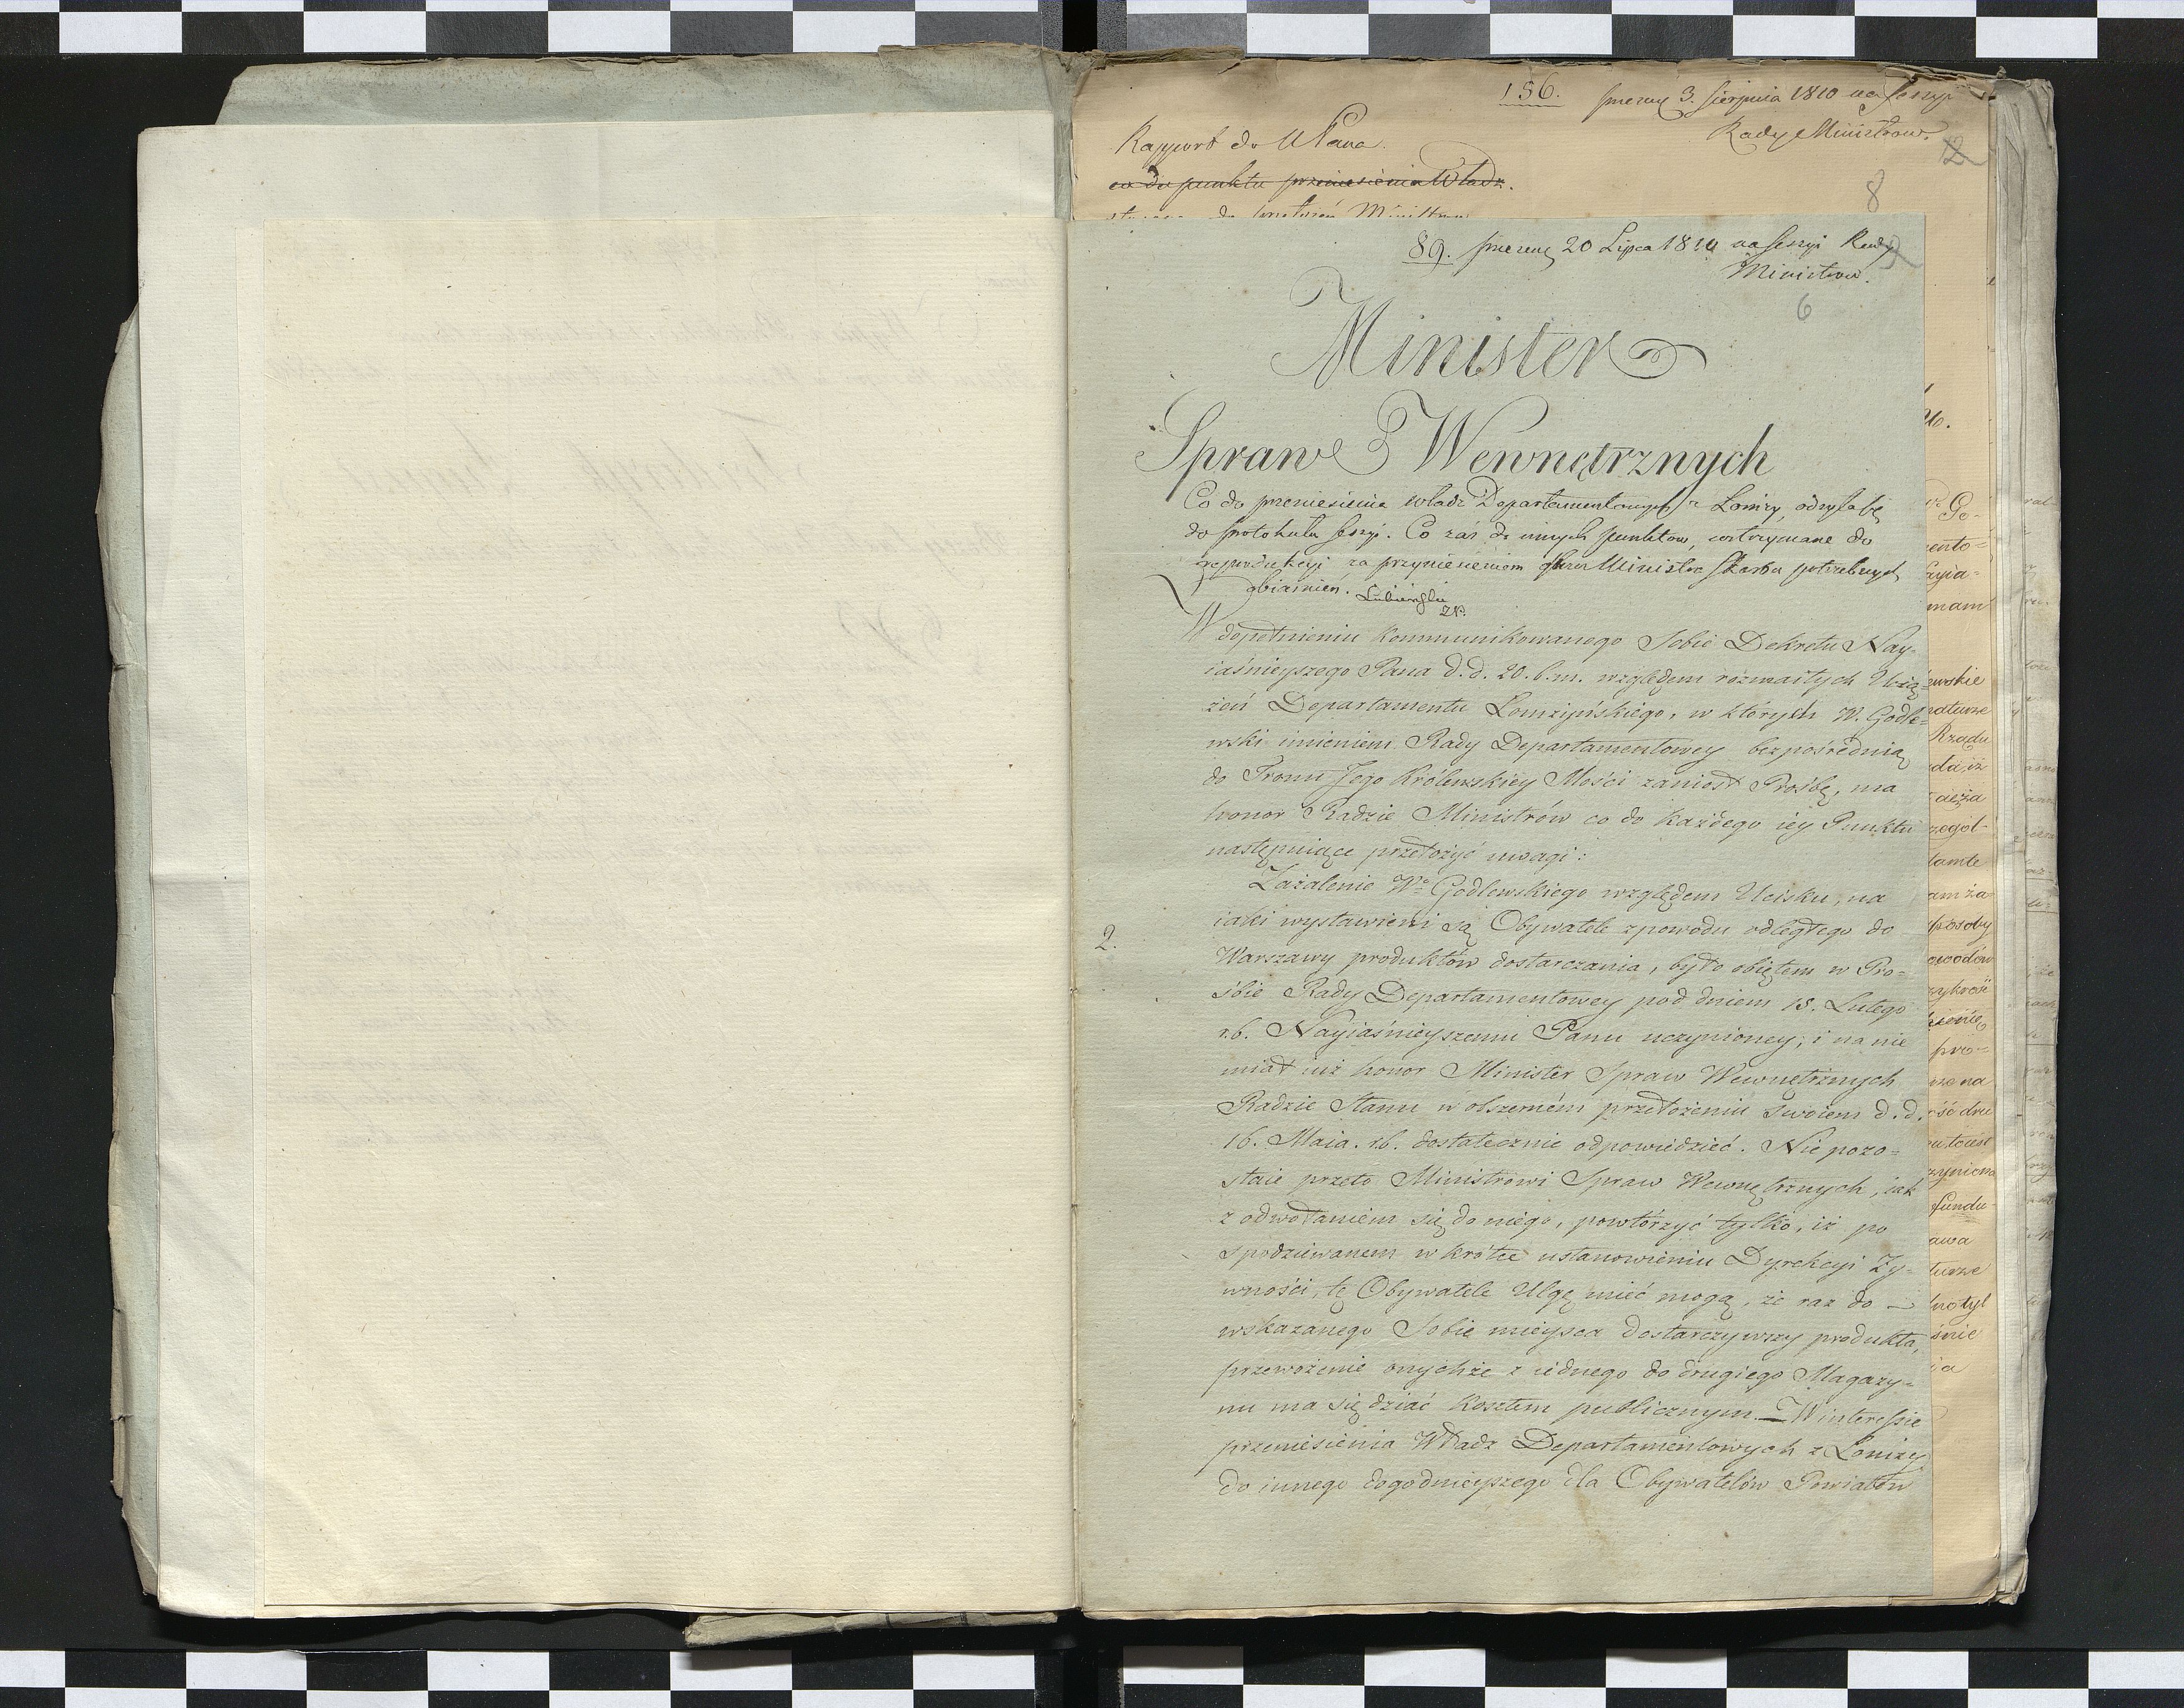 156. 3. Sierpnia 1810 na Sessyi
Rady Ministrow.
12
Rapport do NPana.
co do punktu przeniesienia Władz.
8
89. 20 Lipca 1810 na Sessyi Rady
Ministrow.
6
Minister
Spraw Wewnętrznych
Co do przeniesienia władz Departamentowych z Łomży, odsyła się
do protokułu sessyi. Co zaś do innych punktow, wstrzymane do
reprodukcyi za przyniesieniem przez Ministra Skarbu potrzebnych
obiaśnień. Lubieński
W dopełnieniu kommunikowanego Sobie Dekretu Nay-
iaśnieyszego Pana d.d. 20. b.m. względem rozmaitych Uciąż-
żeń Departamentu Łomżyńskiego, w których W. Godle-
wski imieniem Rady Departamentowey bezpośrednią
do Tronu Jego Królewskiey Mości zaniosł Prośbę, ma
honor Radzie Ministrów co do każdego iey Punktu
następuiące przełożyć uwagi:
Zażalenie Wo Godlewskiego względem Ucisku, na
2.
iaki wystawieni są Obywatele z powodu odległego do
Warszawy produktów dostarczania, było obiętem w Pro-
śbie Rady Departamentowey pod dniem 15. Lutego
r.b. Nayiaśnieyszemu Panu uczynioney; i na nie
miał iuż honor Minister Spraw Wewnętrznych
Radzie Stanu w obszerném przełożeniu Swoiem d.d.
16. Maia. r.b. dostatecznie odpowiedzieć. Nie pozo-
staie przeto Ministrowi Spraw Wewnętrznych, iak
z odwołaniem się do niego, powtórzyć tylko, iż po
spodziewanem w krótce ustanowieniu Dyrekcyi Ży-
wności, tę Obywatele Ulgę mieć mogą, że raz do
wskazanego Sobie mieysca dostarczywszy produkta,
przewożenie onychże z iednego do drugiego Magazy-
nu ma się dziać kosztem publicznym. — W interessie
przeniesienia Władz Departamentowych z Łomży
do innego dogodnieyszego dla Obywatelów Powiatów